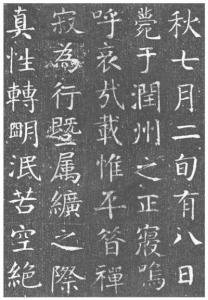 秋七月二旬有八日
薨于潤州之正寢嗚
呼哀哉載惟平昔禪
寂為行暨属纊之際
真性轉朙泯苦空絕